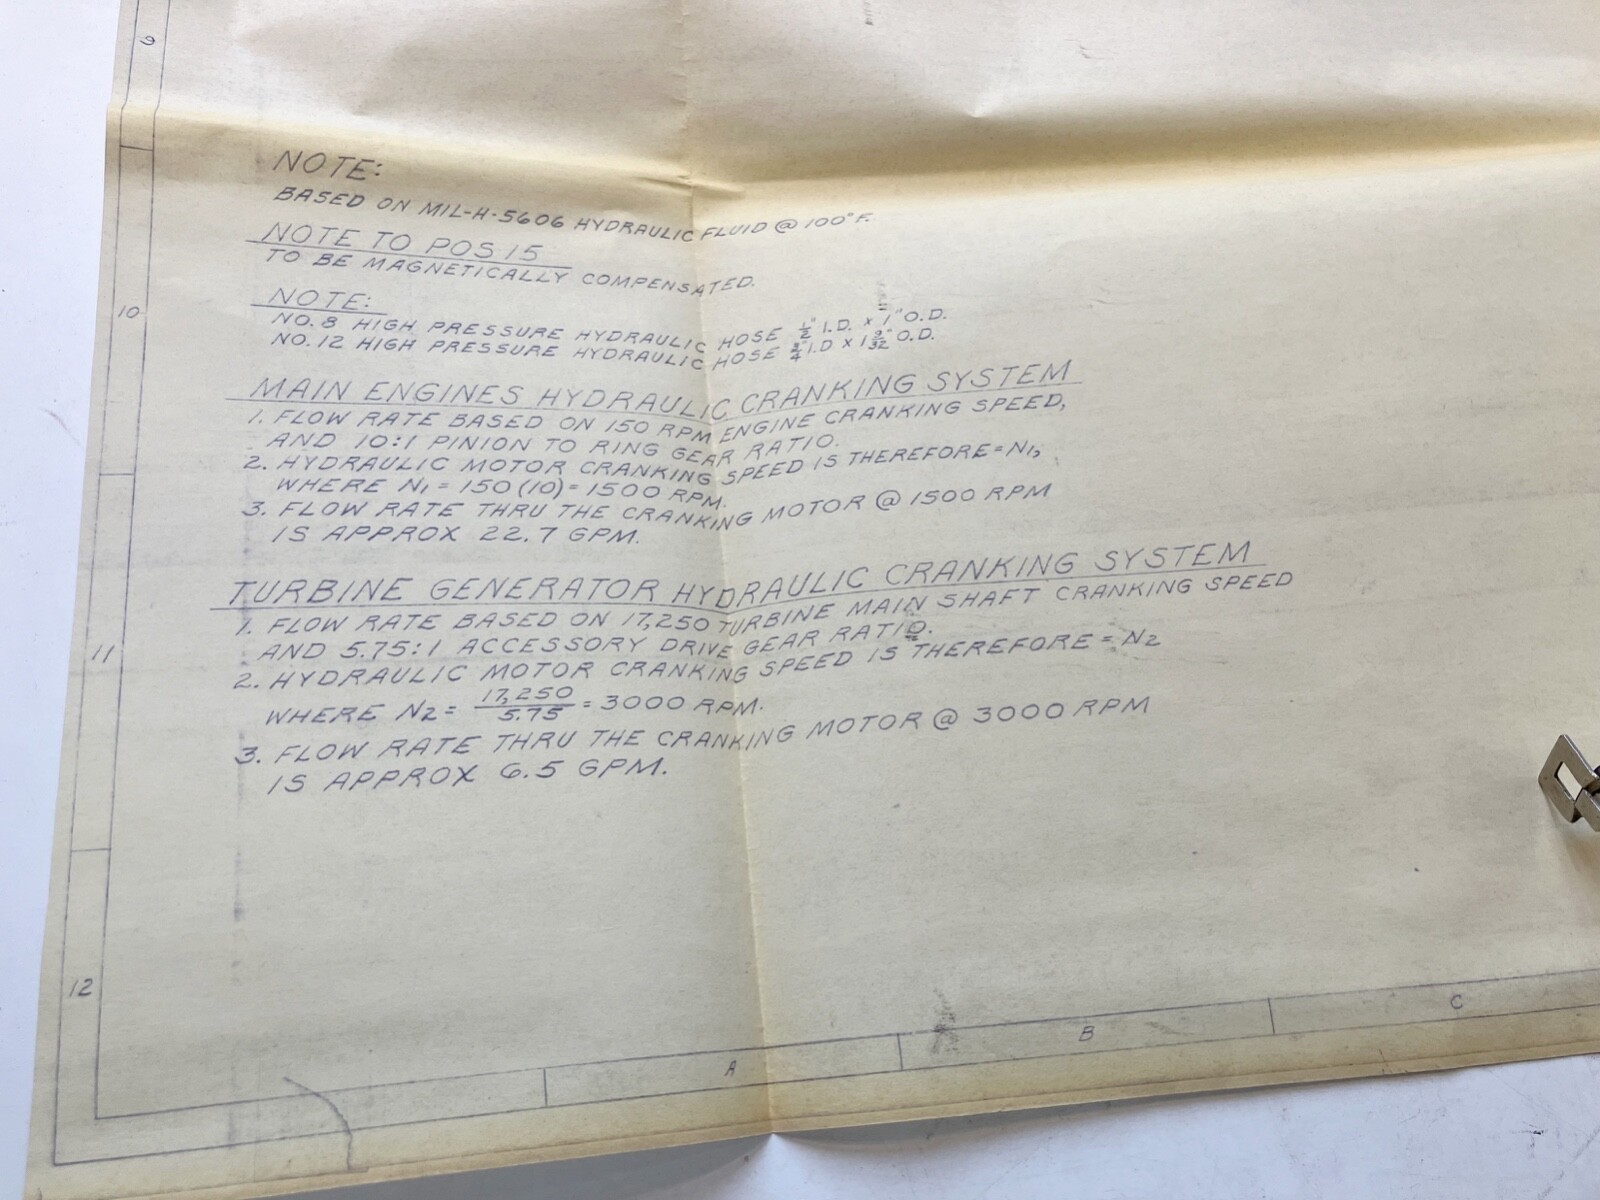 9
NOTE:
BASED ON MIL-H-5606 HYDRAULIC FLUID @ 100°F.
NOTE TO POS 15
TO BE MAGNETICALLY COMPENSATED.
10
NOTE:
NO. 8 HIGH PRESSURE HYDRAULIC HOSE 1/2" I.D. x 1" O.D.
NO. 12 HIGH PRESSURE HYDRAULIC HOSE 3/4" I.D x 1 9/32" O.D.
MAIN ENGINES HYDRAULIC CRANKING SYSTEM
1. FLOW RATE BASED ON 150 RPM ENGINE CRANKING SPEED,
AND 10:1 PINION TO RING GEAR RATIO.
2. HYDRAULIC MOTOR CRANKING SPEED IS THEREFORE = N1,
WHERE N1 = 150 (10) = 1500 RPM.
3. FLOW RATE THRU THE CRANKING MOTOR @ 1500 RPM
IS APPROX 22.7 GPM.
TURBINE GENERATOR HYDRAULIC CRANKING SYSTEM
1. FLOW RATE BASED ON 17,250 TURBINE MAIN SHAFT CRANKING SPEED
11
AND 5.75:1 ACCESSORY DRIVE GEAR RATIO.
2. HYDRAULIC MOTOR CRANKING SPEED IS THEREFORE = N2
WHERE N2 = 17,250/5.75 = 3000 RPM.
3. FLOW RATE THRU THE CRANKING MOTOR @ 3000 RPM
IS APPROX 6.5 GPM.
12
A B C